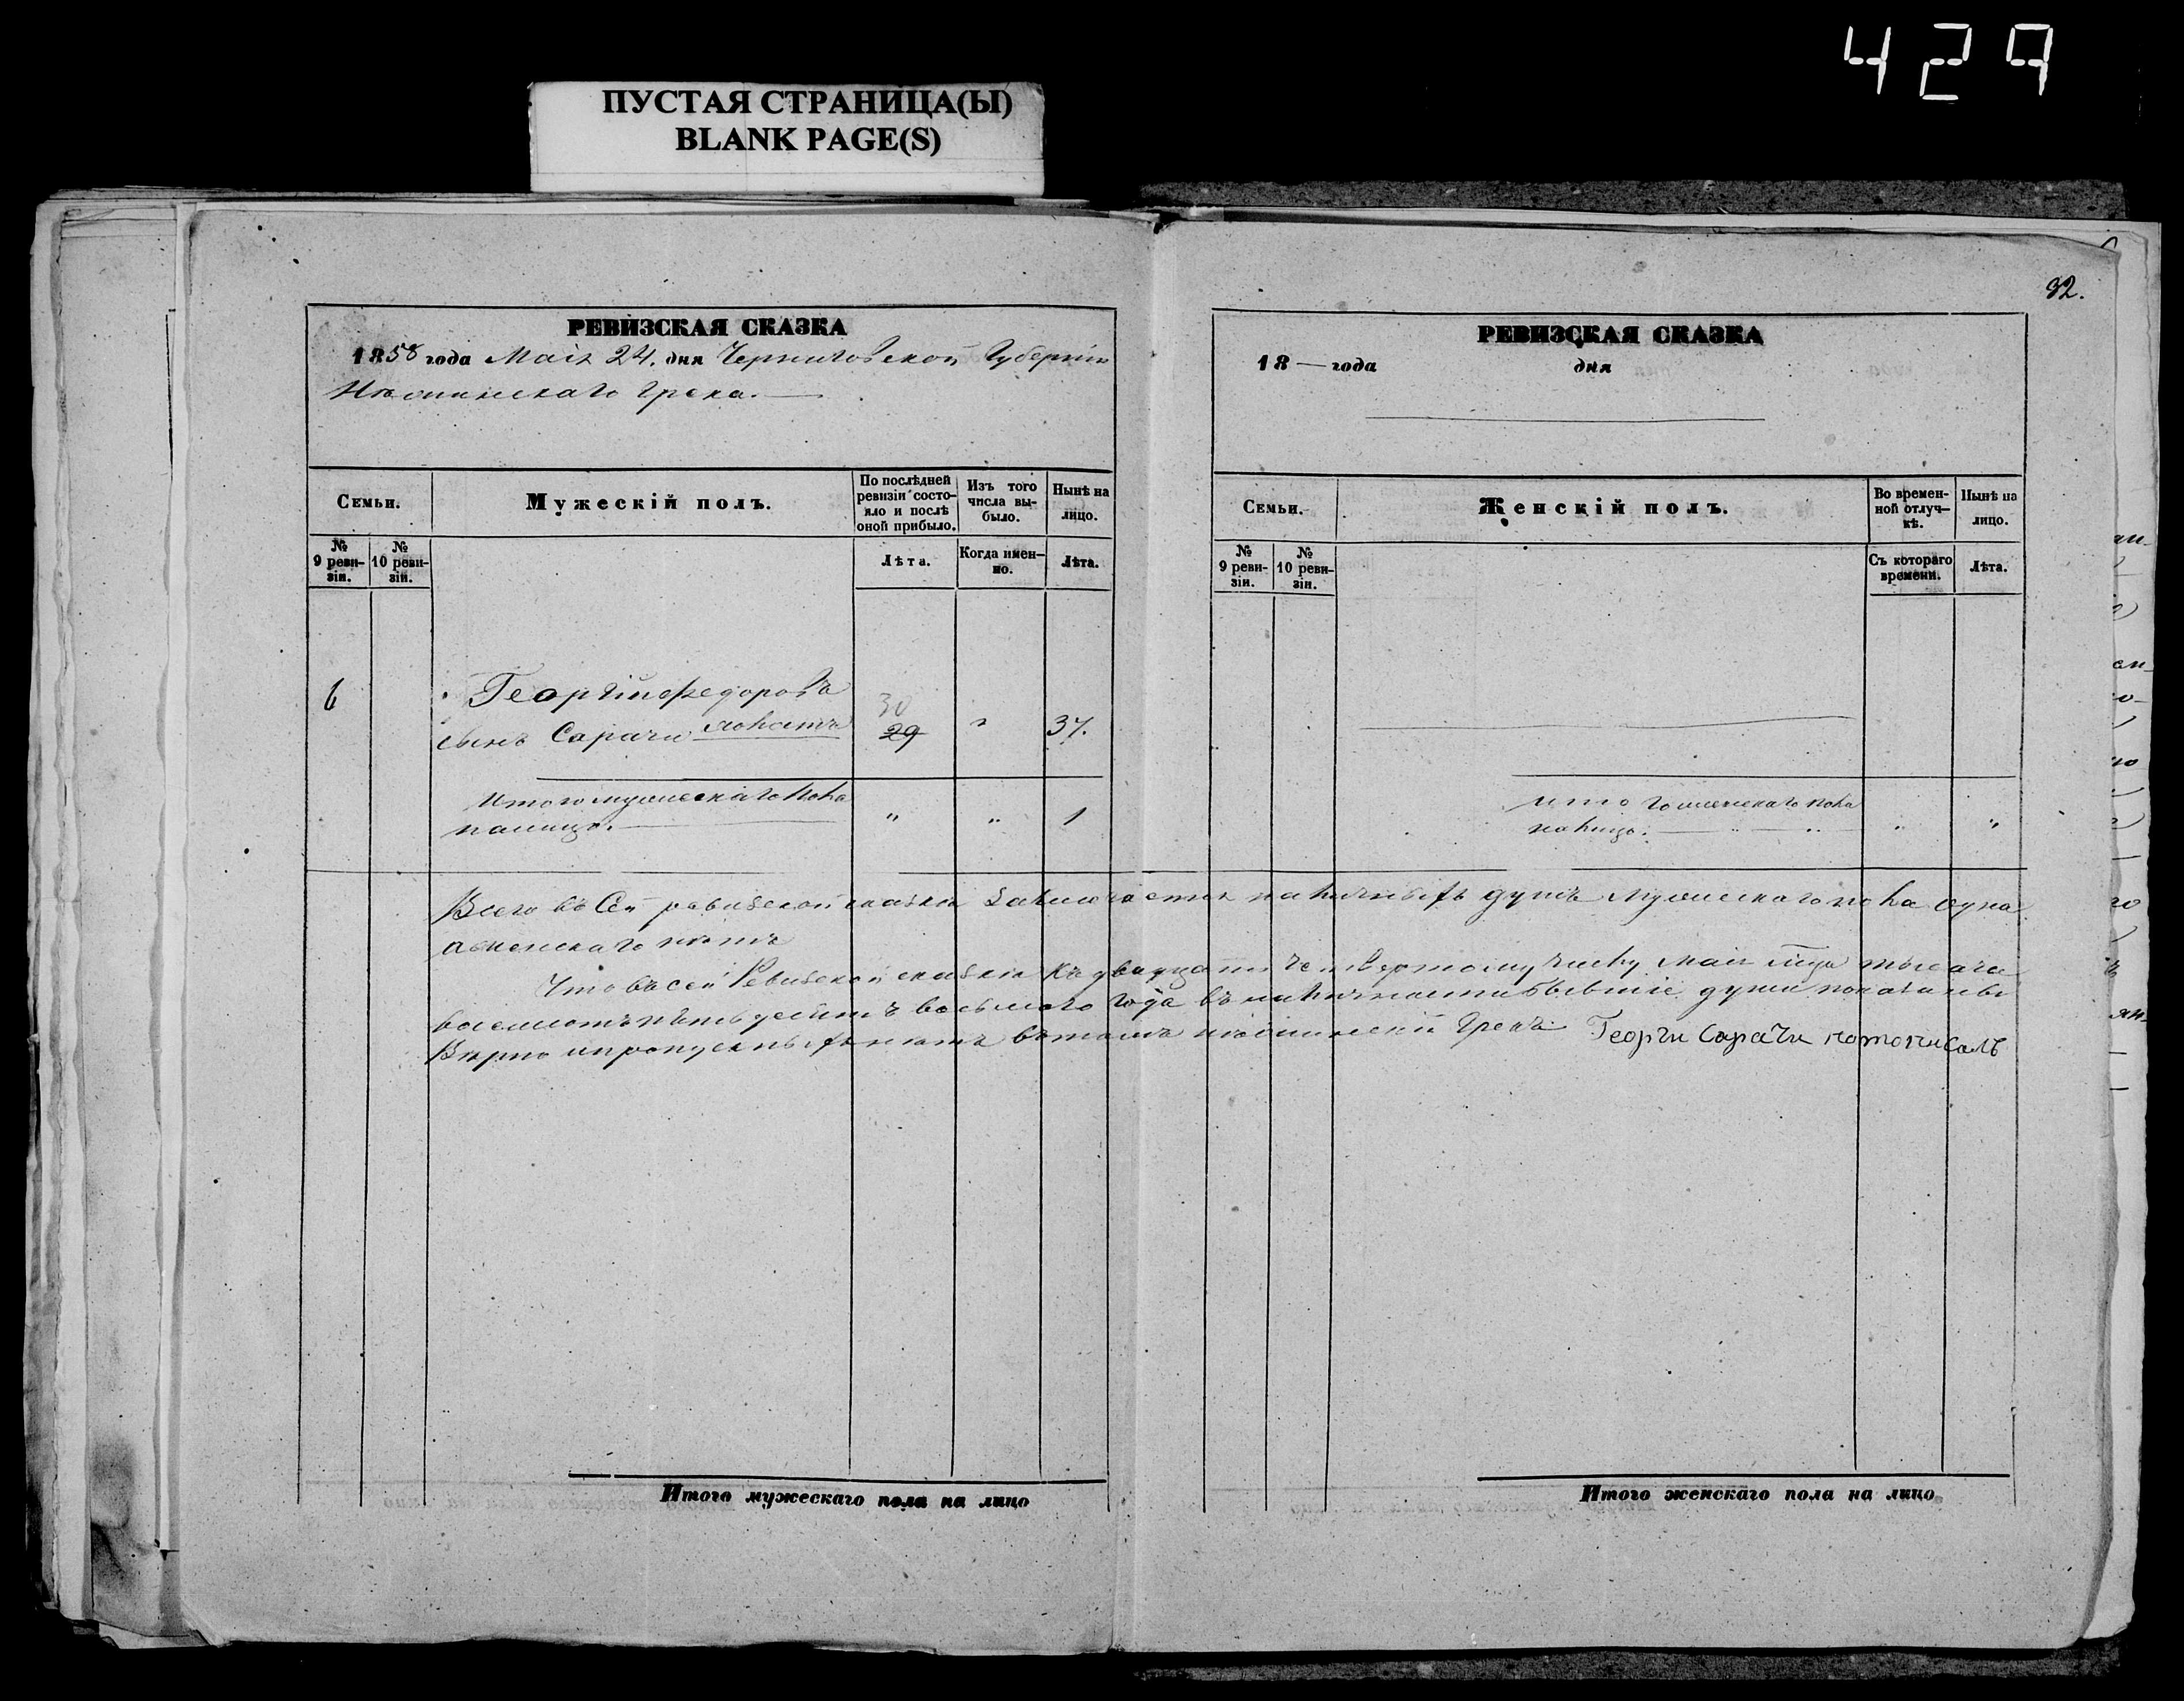 429
ПУСТАЯ СТРАНИЦА(Ы)
BLANK PAGE(S)
РЕВИЗСКАЯ СКАЗКА
1858 года Маія 24. дня Черниговской Губерніи
Нѣжинскаго Грека.
Семьи.
Мужескій полъ.
По послѣдней ревизіи состояло и послѣ оной прибыло.
Изъ того числа выбыло.
Нынѣ на лицо.
№ 9 ревизіи.
№ 10 ревизіи.
Лѣта.
Когда именно.
Лѣта.
6
Георгій Федоровъ
30
сынъ Сарачи
29
"
37.
Итого мужескаго пола
налицо.
"
"
1
Всего въ Сей ревизской сказкѣ заключается наличныхъ душъ мужескаго пола одна
а женскаго нѣтъ
Что въ сей Ревизской сказкѣ къ двадцать четвертому числу Маія мца тысяча
восемсотъ пятьдесятъ восьмаго года въ наличности бывшіе души показаны
Вѣрно и пропускныхъ нѣтъ въ томъ нѣжинскій Грекъ Георги Сарачи потописалъ
Итого мужескаго пола на лицо
32.
РЕВИЗСКАЯ СКАЗКА
18 — года дня
Семьи.
Женскій полъ.
Во временной отлучкѣ.
Нынѣ на лицо.
№ 9 ревизіи.
№ 10 ревизіи.
Съ котораго времени.
Лѣта.
итого женскаго пола
налицо.
"
"
Итого женскаго пола на лицо